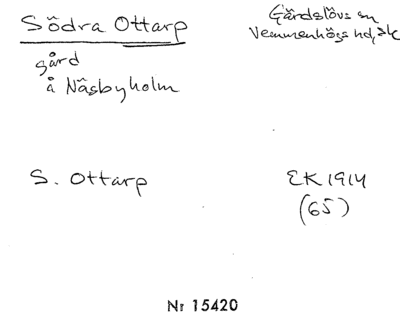 Södra Ottarp
gård
å Näsbyholm
Gärdslövs sn
Vemmenhögs hd, Sk
S. Ottarp
EK 1914
(65)
Nr 15420